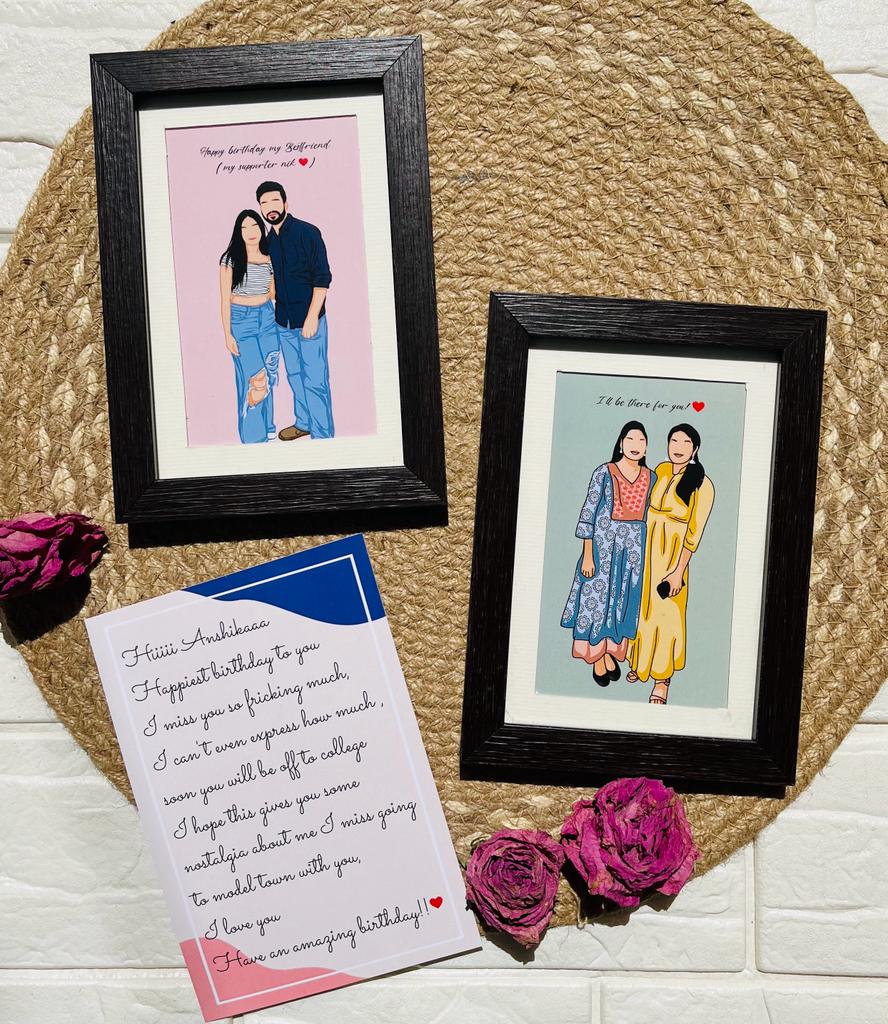 Happy birthday my Bestfriend
(my supporter nik ❤)
I'll be there for you! ❤
Hiiiii Anshikaaa
Happiest birthday to you
I miss you so fricking much,
I can't even express how much ,
soon you will be off to college
I hope this gives you some
nostalgia about me I miss going
to model town with you,
I love you
Have an amazing birthday!!❤